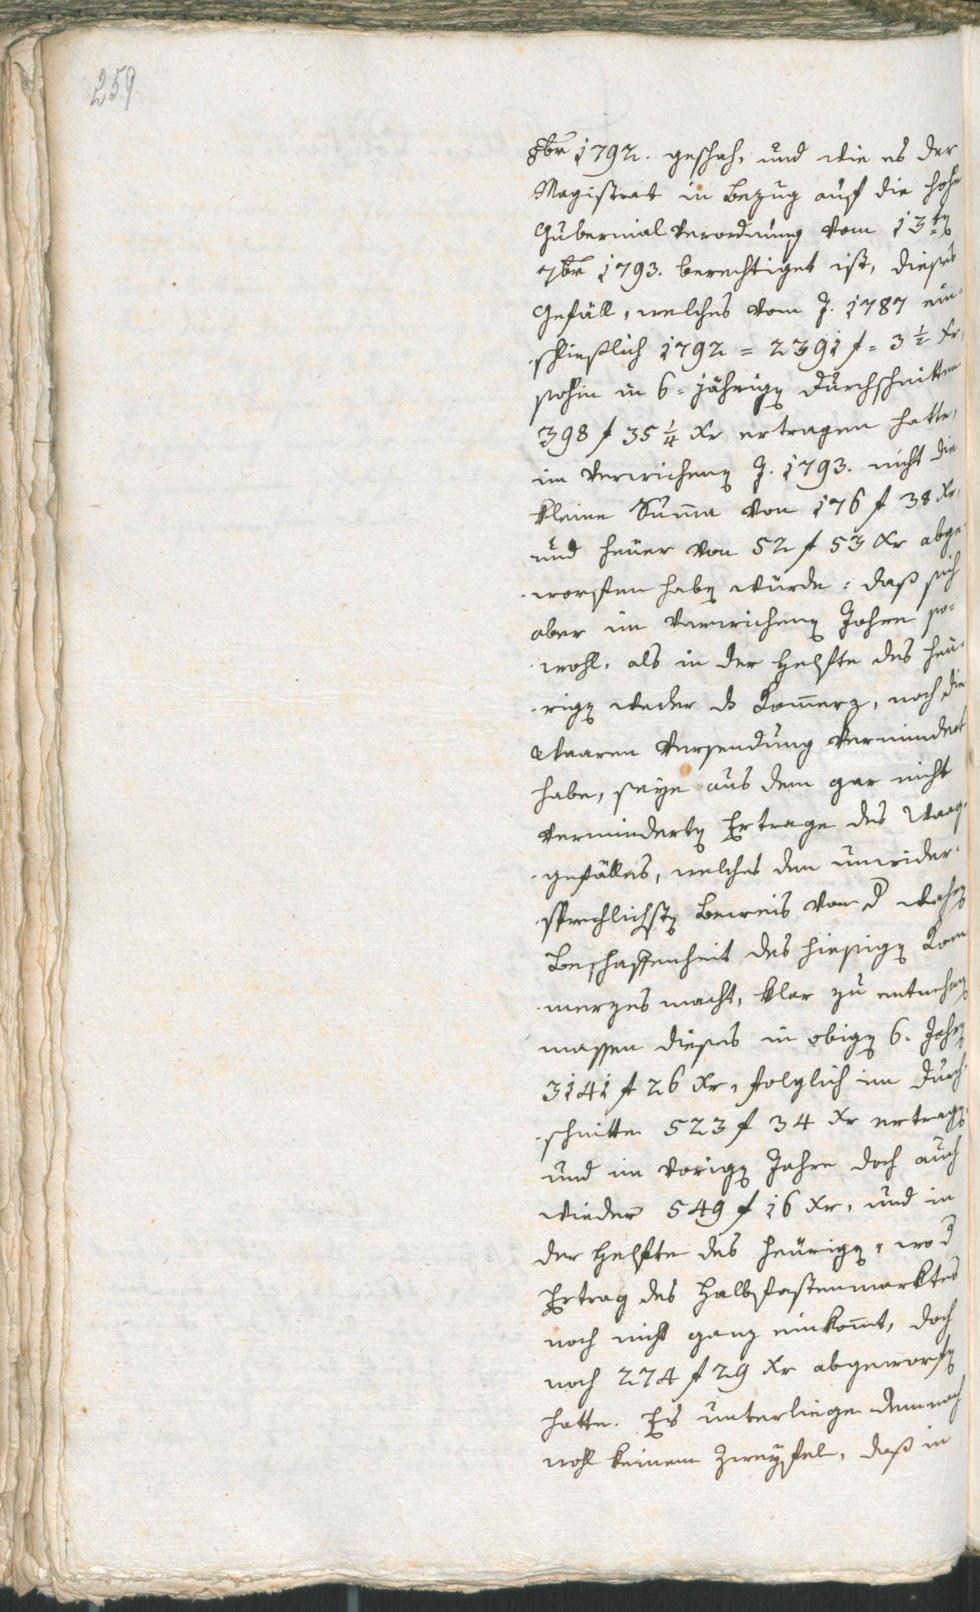 259
8br 1792. geschah, und wie es der
Magistrat in Bezug auf die hohe
Gubernial Verordnung vom 13tn
7br 1793. berechtiget ist, dieses
Gefäll, welches vom J. 1787 ein-
schließlich 1792 = 2391 f = 3 1/2 Xr,
sohin in 6 = jährign Durchschnitten
398 f 35 1/4 Xr ertragen hatte,
im verwichenn J. 1793. nicht die
kleine Summa von 176 f 38 Xr,
und heuer von 52 f 53 Xr abge-
worfen habn würde: daß sich
aber im verwichenn Jahre so-
wohl, als in der Helfte des heu-
rign weder ds Kommerz, noch die
Waaren Versendung vermindert
habe, seye aus dem gar nicht
vermindertn Ertrage des Waag-
gefälles, welches den unwider-
sprechlichstn Beweis von d wahrn
Beschaffenheit des hiesign Kom
merzes macht, klar zu entnehmn
massen dieses in obign 6. Jahrn
3141 f 26 Xr, folglich im Durch-
schnitte 523 f 34 Xr ertragn,
und im vorign Jahre doch auch
wieder 549 f 16 Xr, und in
der Helfte des heurign, wo d
Ertrag des Halbfastenmarktes
noch nicht ganz einkommt, doch
noch 274 f 29 Xr abgeworfn
hatte. Es unterliege demnach
wohl keinem Zweyfel, daß in